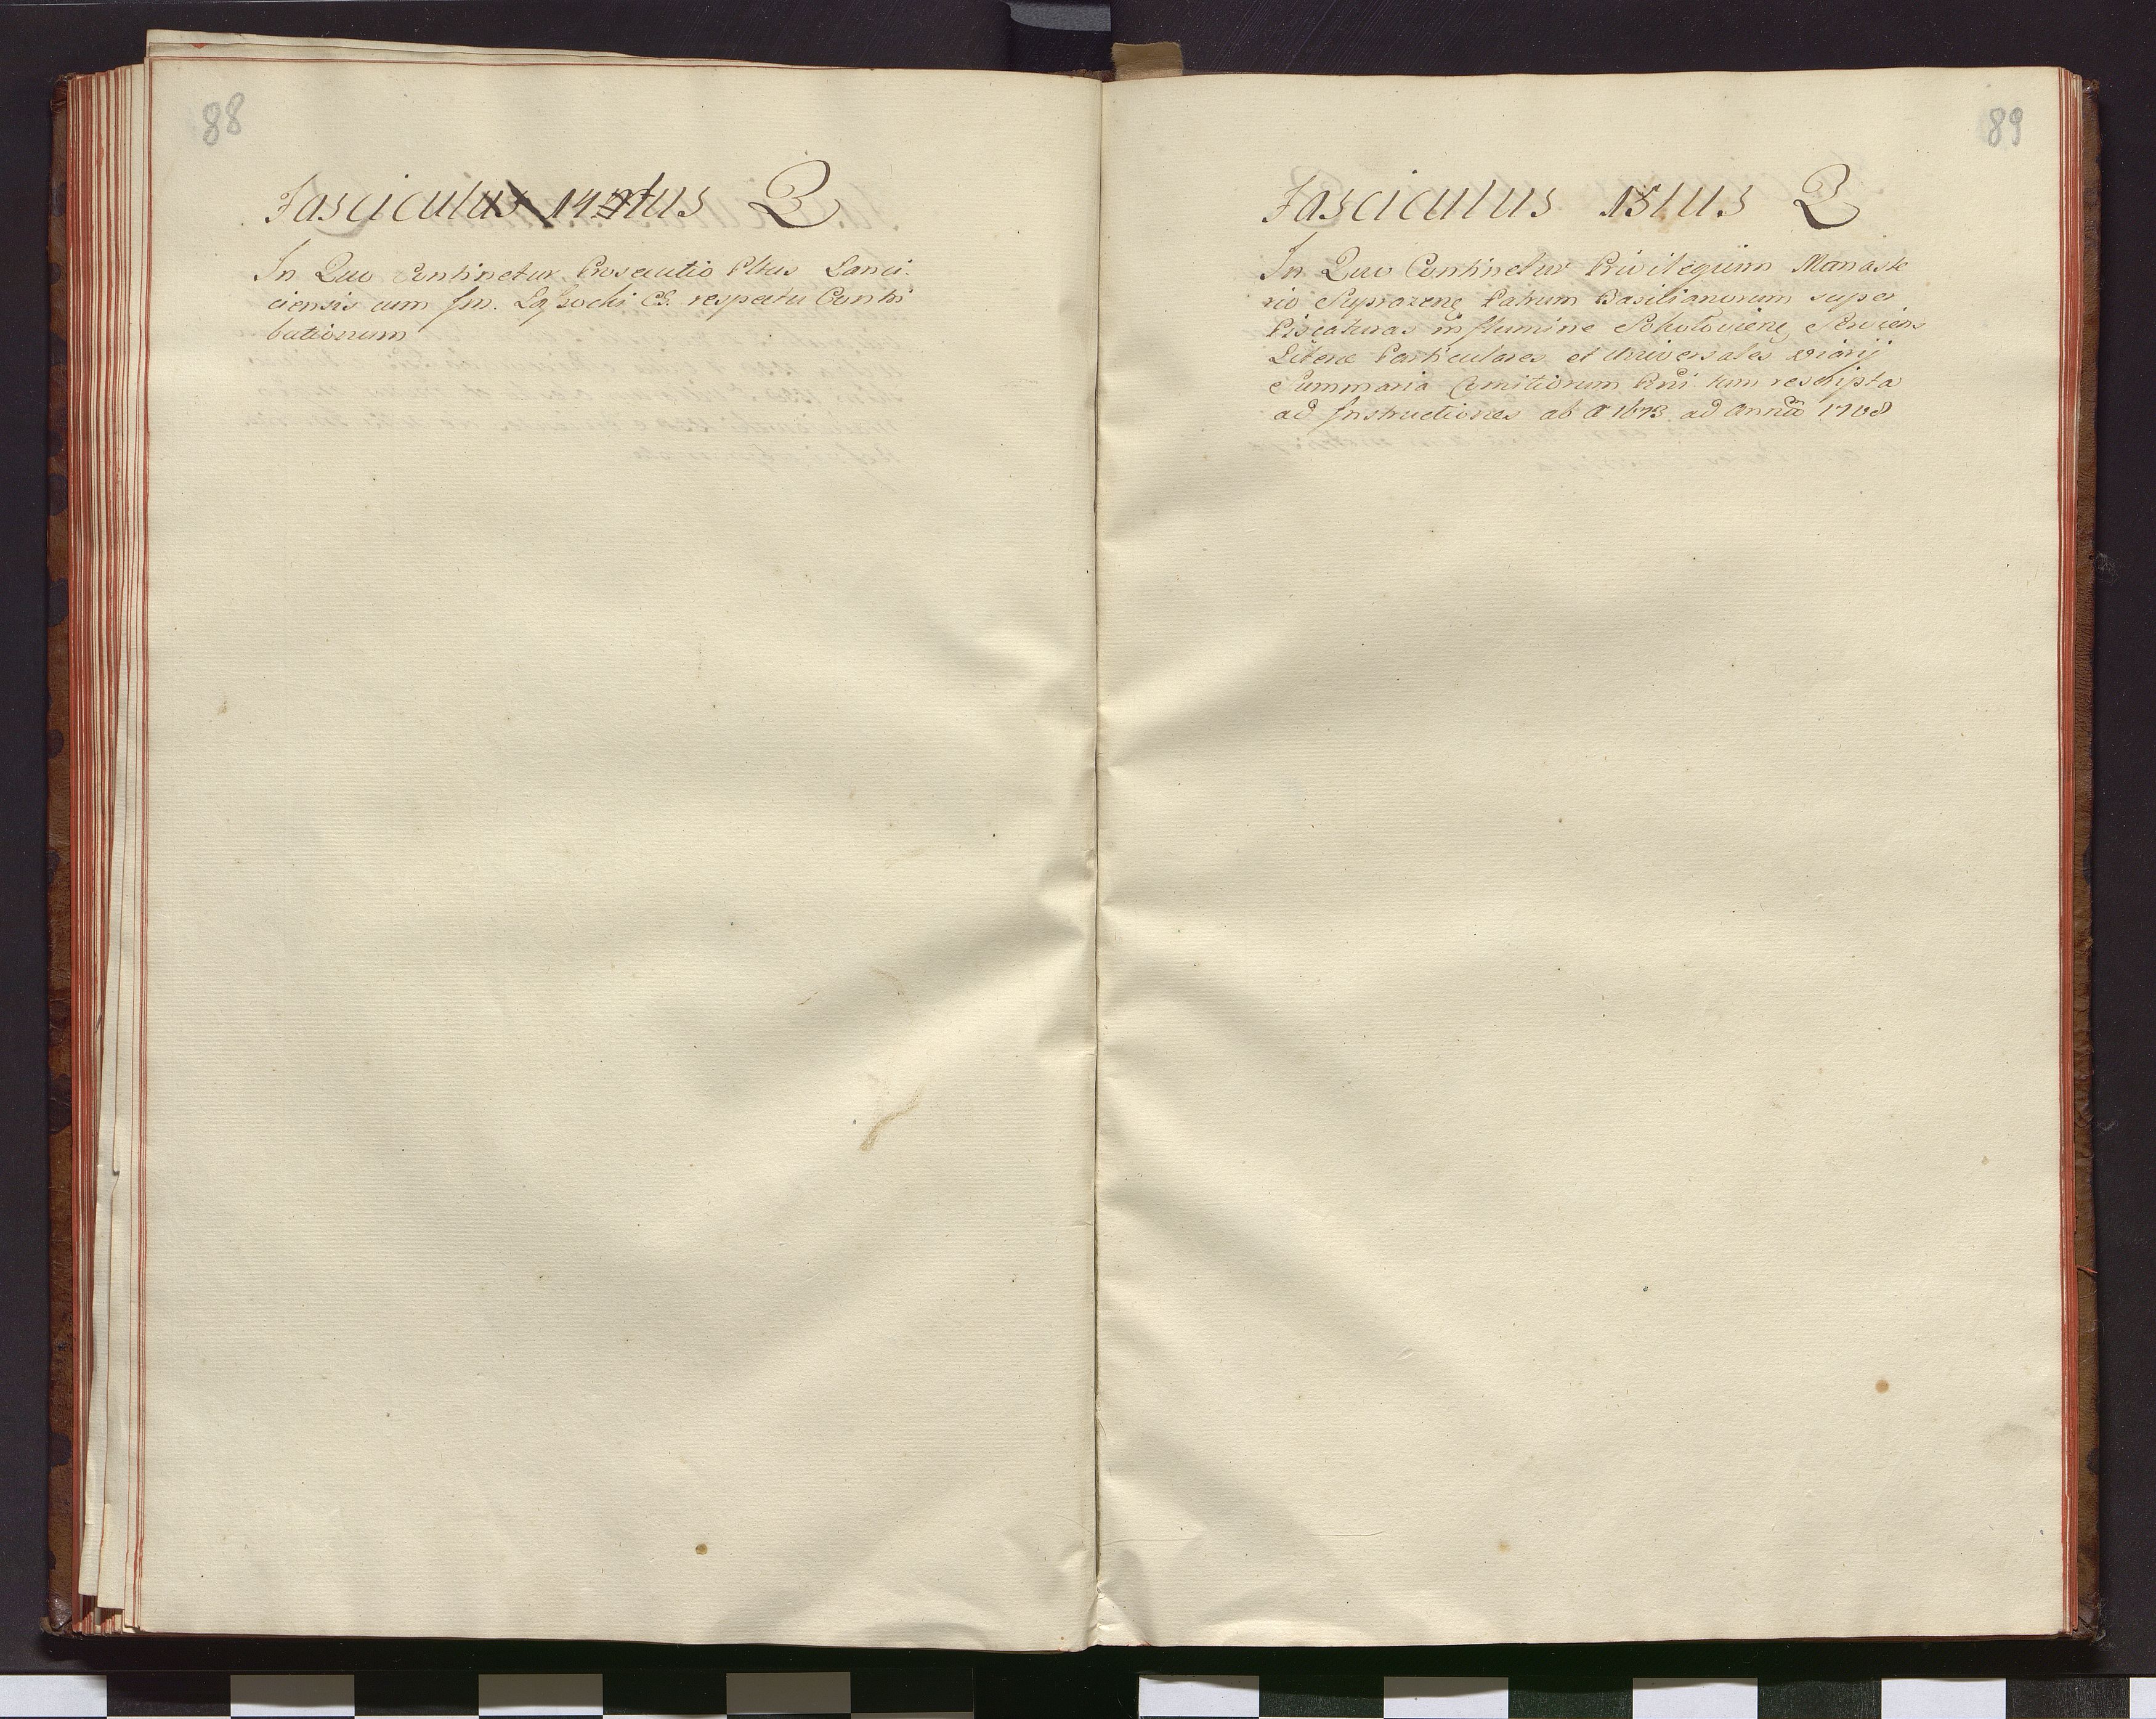 88
Fasciculus 14tus Q
In Quo Continetur Prosecutio Pltus Lanci
ciensis cum Im. respectu Contri
butionum
89
Fasciculus 15tus Q
In Quo Continetur Privilegium Monaste
rio Patrum Basilianorum super
Piscaturas in flumine Serviens
Literæ Particulares et Universales
Summaria Comitiorum tum rescripta
ad Instructiones ab A 1673 ad Annū 1708